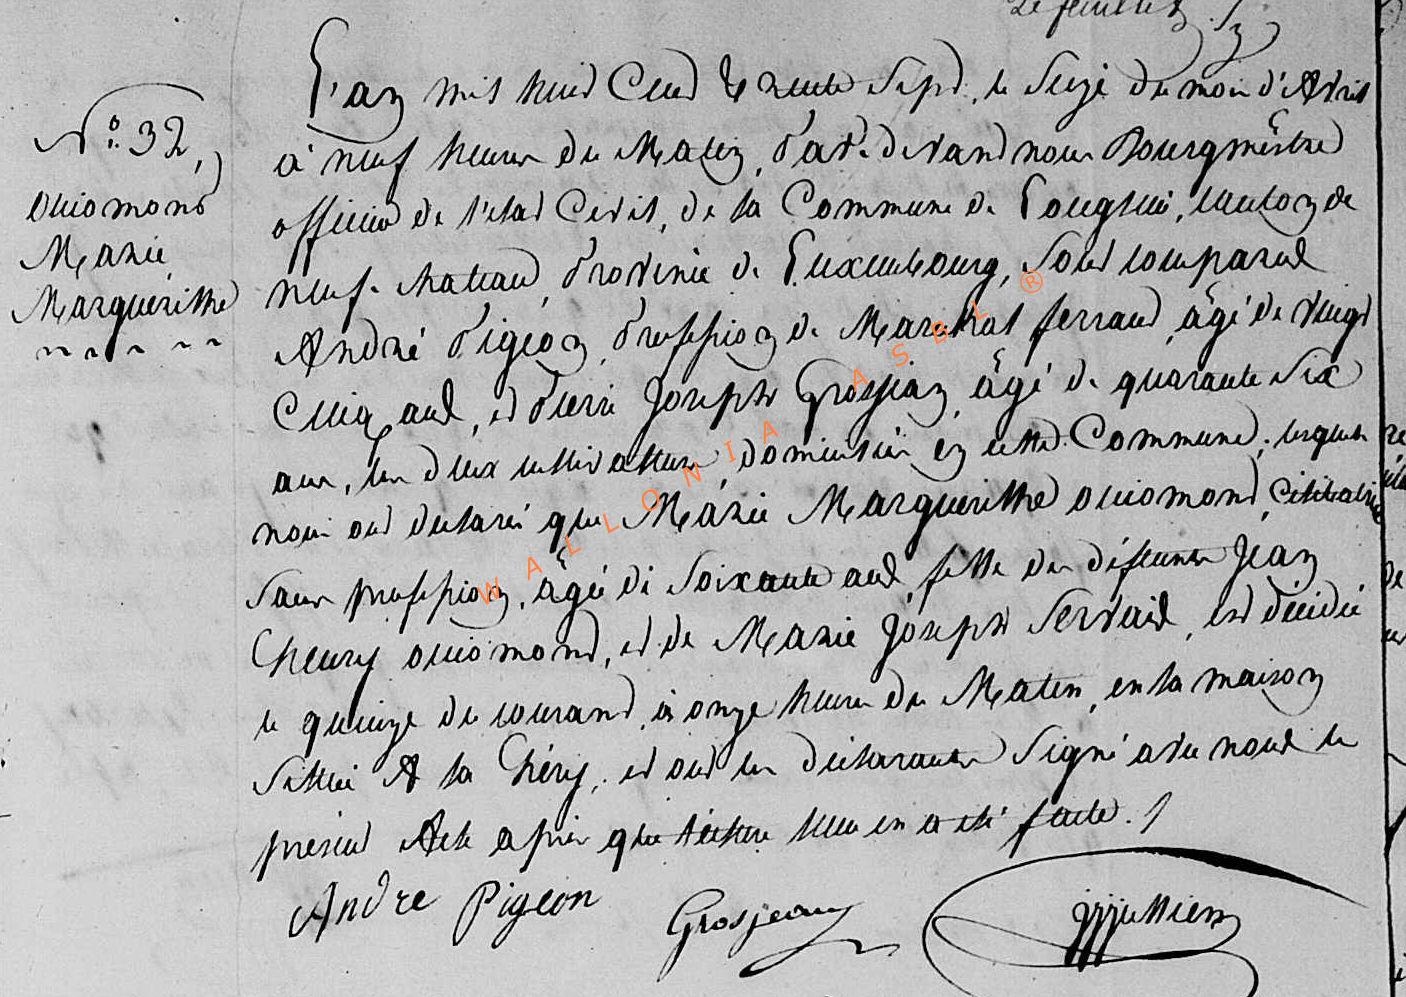 2e feuillet
N°: 32,
Ouiomond
Marie
Marguerithe
L'an mil huid Cend trente Sepd, le Seize du moi d'Avril
à neuf heures du Matin, Pard devand nous Bourgmestre
officier de l'étad Civil, de la Commune de Longlier, canton de
neufchateau, Province de Luxembourg, Sond comparud
André Pigeon, Profession de Marechal ferrand, âgé de vingd
Cinq and, ed Pierre Joseph Grosjean, âgé de quarante Six
ans, les deux cultivatteur, domiciliés en cette Commune, lesquels
nous ond déclaré que Marie Marguerithe ouiomond, Célibataire
Sans profession, âgée de Soixante and fille des défunts Jean
henry ouiomond, ed de Marie Joseph Servaid, esd décédée
le quinze du courand, à onze heures du Matin, en la maison
Sittué A la hérie, ed ond les déclarants Signé avec noud le
présend Acte après que lecture leur en a été faite.
André Pigeon
Grosjean